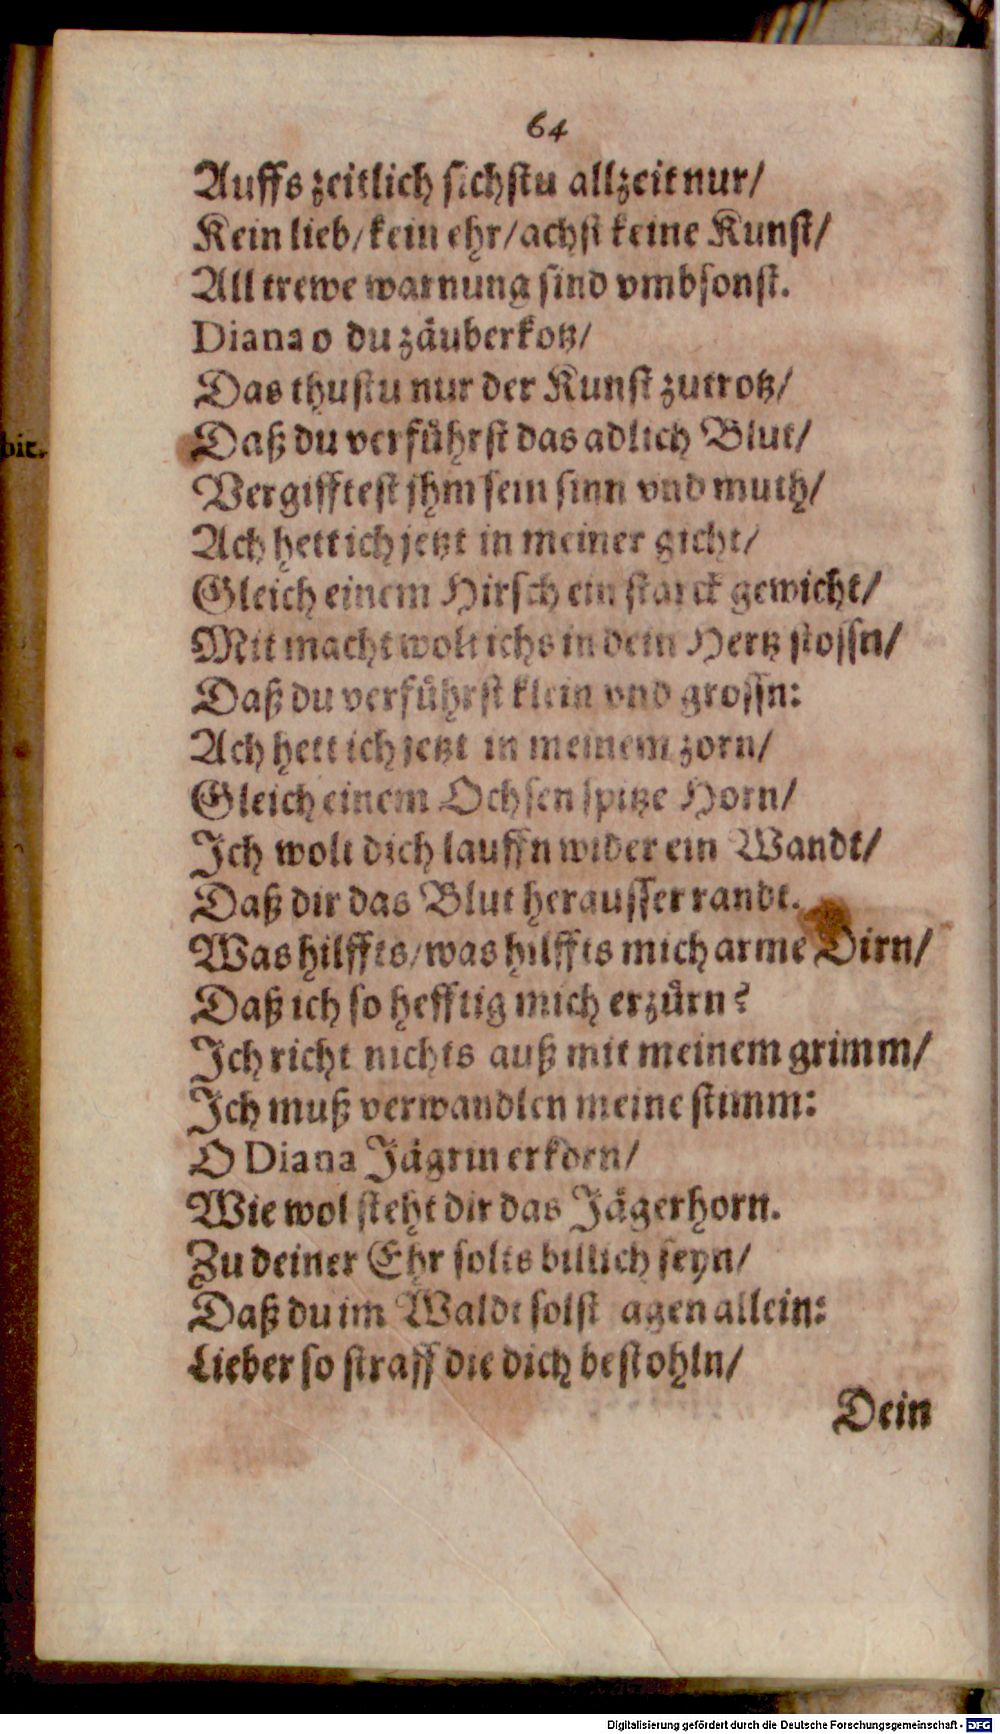 64
Auffs zeitlich sichstu allzeit nur/
Kein lieb/kein ehr/achst keine Kunst/
All trewe warnung sind vmbsonst.
Diana o du zäuberkotz/
Das thustu nur der Kunst zutrotz/
Daß du verführst das adlich Blut/
Vergifftest jhm sein sinn vnd muth/
Ach hett ich jetzt in meiner gicht/
Gleich einem Hirsch ein starck gewicht/
Mit macht wolt ichs in dein Hertz stossn/
Daß du verführst klein vnd grossn:
Ach hett ich jetzt in meinem zorn/
Gleich einem Ochsen spitze Horn/
Ich wolt dich lauffn wider ein Wandt/
Daß dir das Blut herausser randt.
Was hilffts/was hilffts mich arme Dirn/
Daß ich so hefftig mich erzürn?
Ich richt nichts auß mit meinem grimm/
Ich muß verwandlen meine stimm:
O Diana Jägrin erkorn/
Wie wol steht dir das Jägerhorn.
Zu deiner Ehr solts billich seyn/
Daß du im Waldt solst agen allein:
Lieber so straff die dich bestohln/
Dein
Digitalisierung gefördert durch die Deutsche Forschungsgemeinschaft - DFG